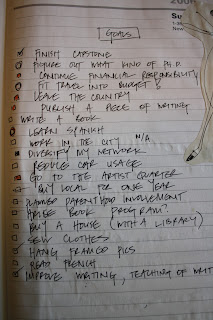 Su
GOALS
FINISH CAPSTONE
FIGURE OUT WHAT KIND OF PH.D.
CONTINUE FINANCIAL RESPONSIBILITY
FIT TRAVEL INTO BUDGET
LEAVE THE COUNTRY
PUBLISH A PIECE OF WRITING
WRITE A BOOK
LEARN SPANISH
WORK IN THE CITY N/A
DIVERSIFY MY NETWORK
REDUCE CAR USAGE
GO TO THE ARTIST QUARTER
BUY LOCAL FOR ONE YEAR
PLANNED PARENTHOOD INVOLVEMENT
BOOK PROGRAM?
BUY A HOUSE (WITH A LIBRARY)
SEW CLOTHES
HANG FRAMED PICS
READ FRENCH
IMPROVE WRITING, TEACHING OF WRIT